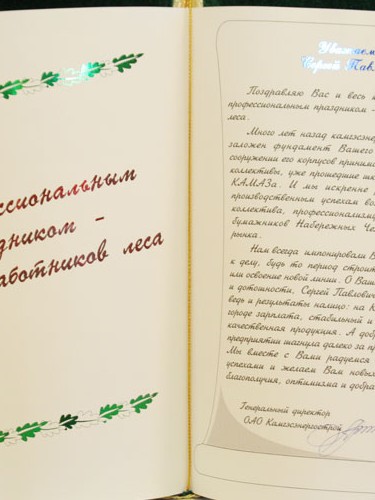 ссиональным
дником -
аботников леса
Уважаем
Сергей Павл
Поздравляю Вас и весь к
профессиональным праздником -
леса.
Много лет назад камгэсэнерг
заложен фундамент Вашего
сооружении его корпусов принима
коллективы, уже прошедшие шк
КАМАЗа. И мы искренне
производственным успехам во
коллектива, профессионализму
бумажников Набережных Че
рынка.
Нам всегда импонировали В
к делу, будь то период строит
или освоение новой линии. О Ваше
и дотошности, Сергей Павлович
ведь и результаты налицо: на К
городе зарплата, стабильный и
качественная продукция. А добр
предприятии шагнула далеко за пр
Мы вместе с Вами радуемся
успехами и желаем Вам новых
благополучия, оптимизма и добра
Генеральный директор
ОАО Камгэсэнергострой